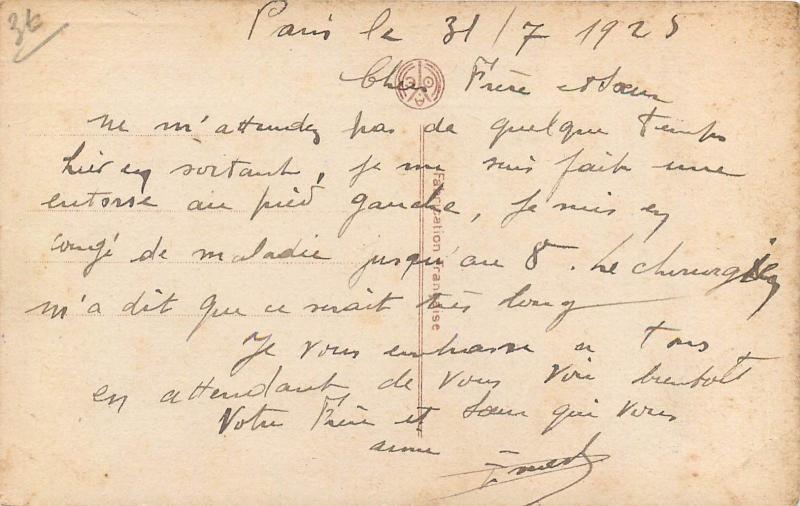 3€
Paris le 31/7 1925
Cher Frère et Sœur
ne m'attendez pas de quelque temps
hier en sortant, je me suis fait une
entorse au pied gauche, je suis en
congé de maladie jusqu'au 8. Le chirurgien
m'a dit que ce serait très long
Je vous embrasse a tous
en attendant de vous voir bientôt
Votre Frère et Sœur qui vous
aime
Ernest
Fabrication Française